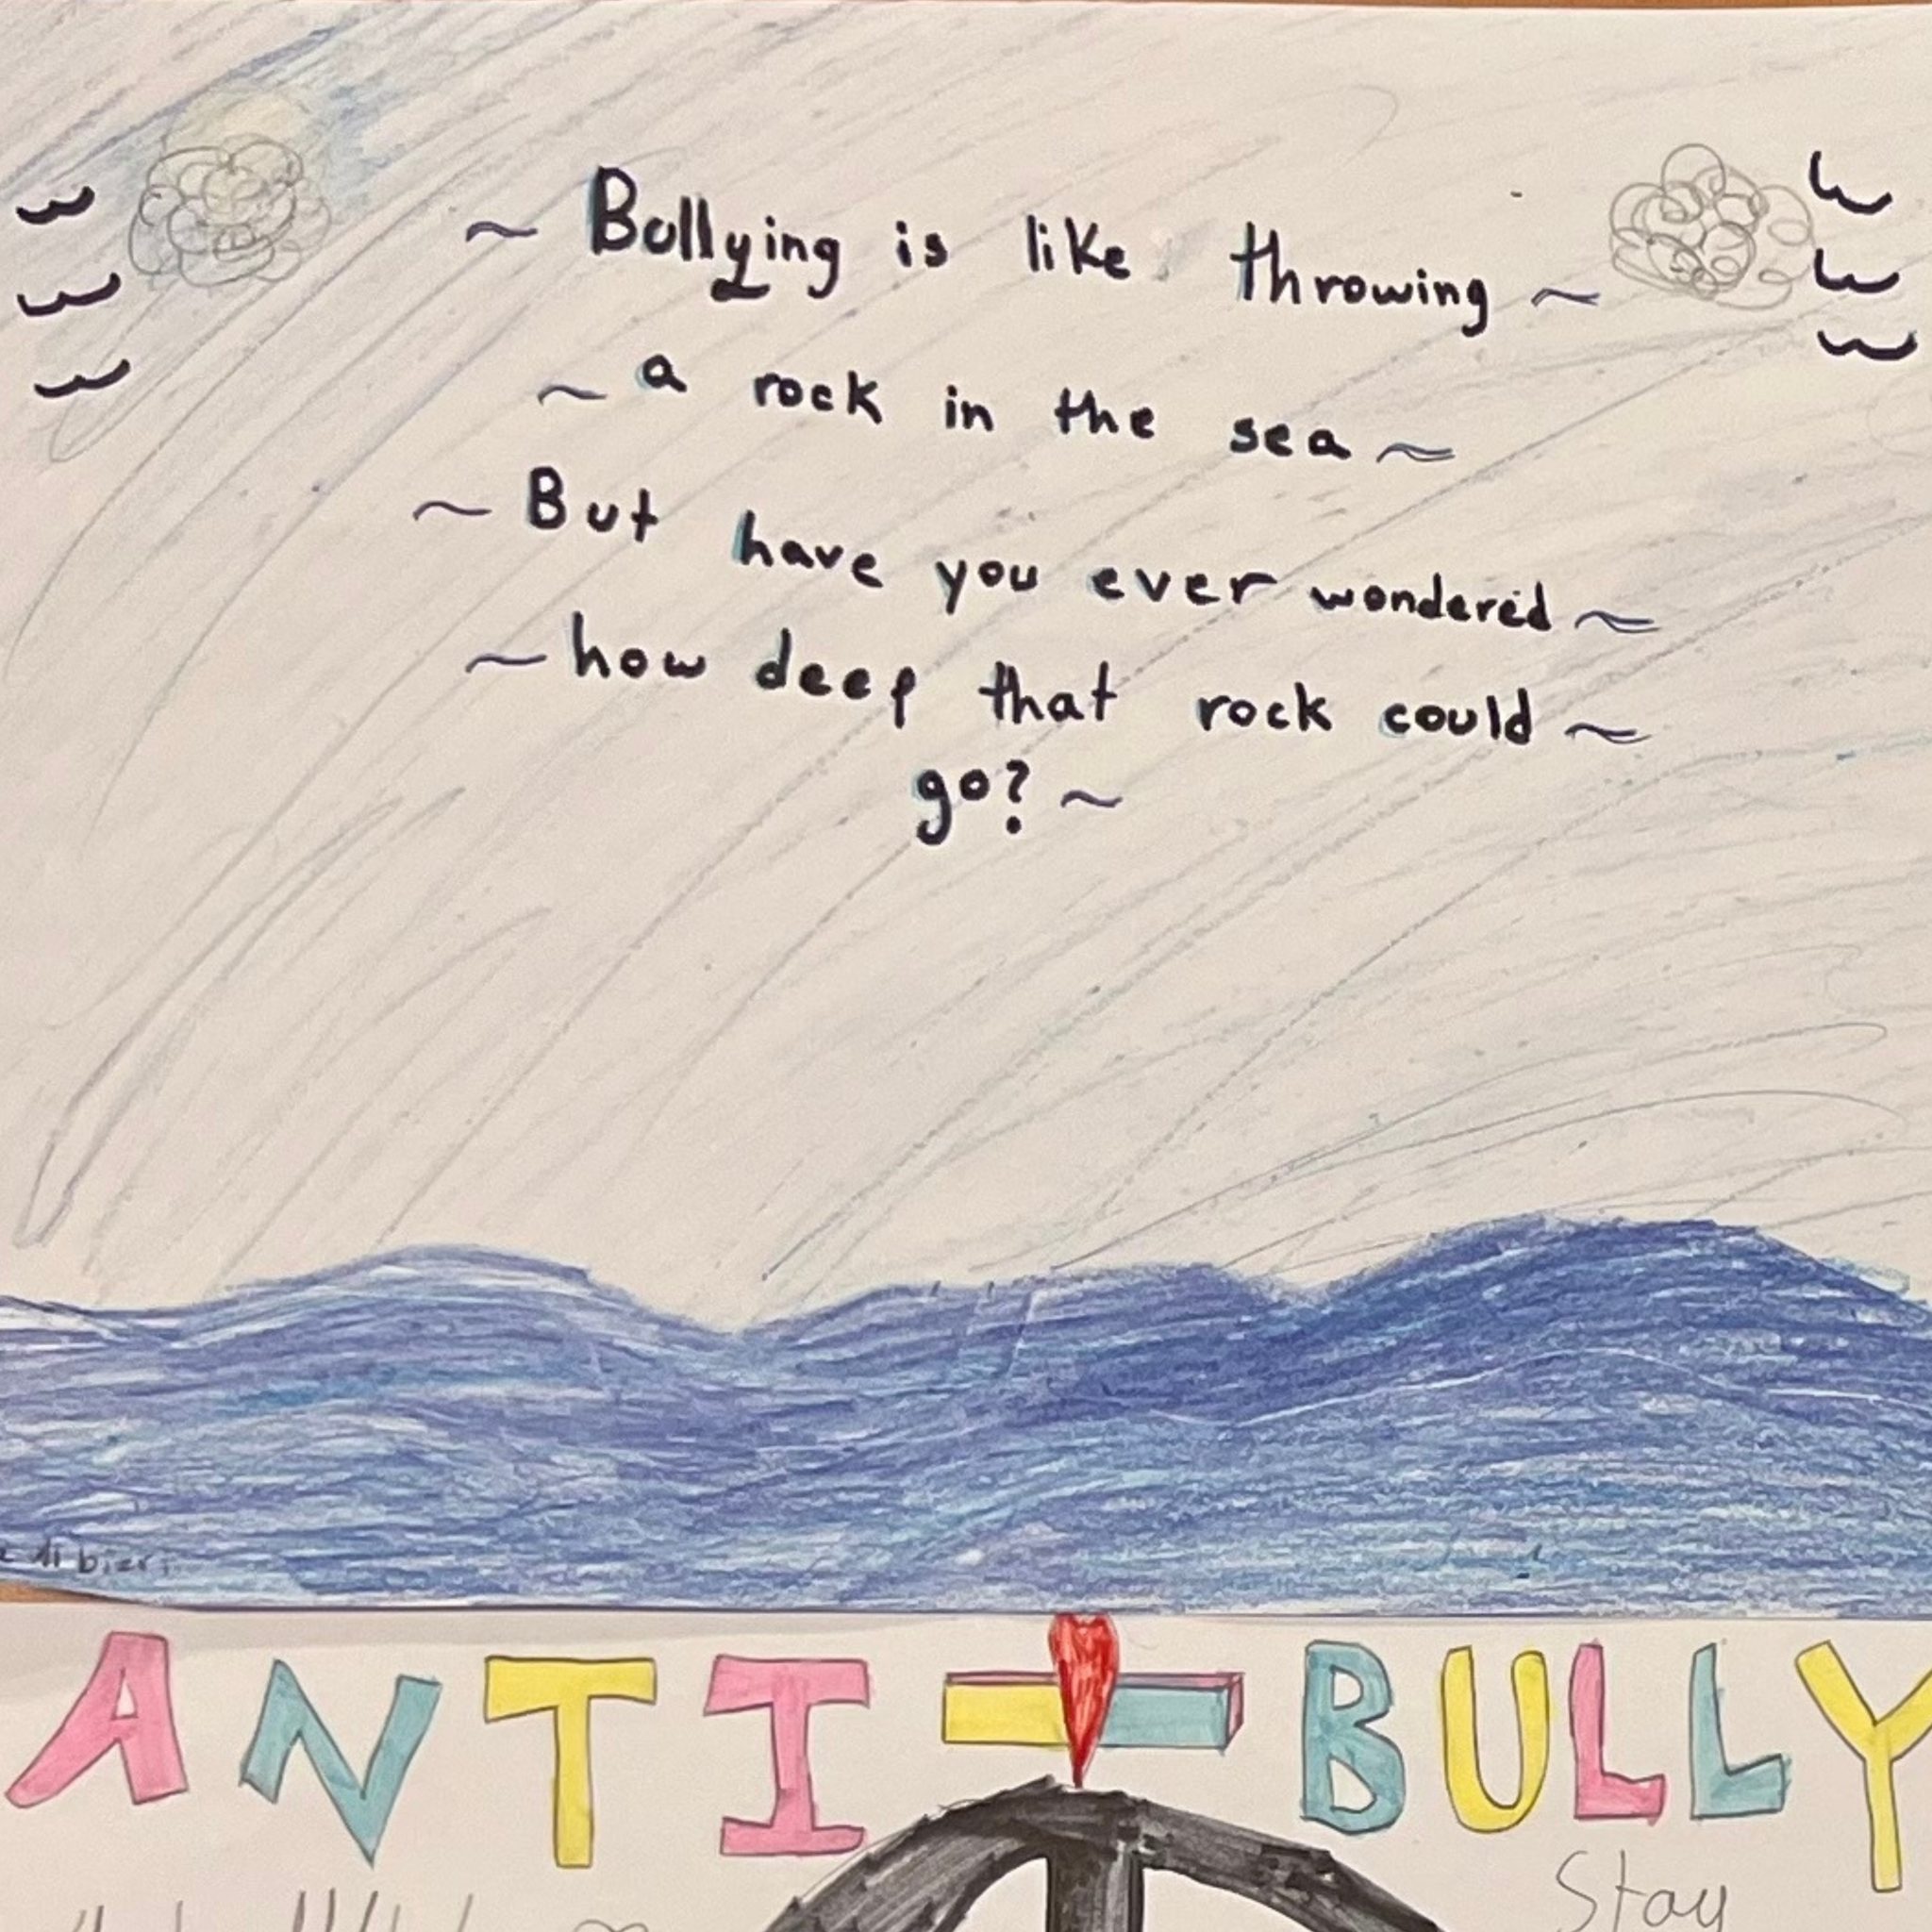 ~ Bullying is like throwing ~
~ a rock in the sea ~
~ But have you ever wondered ~
~ how deep that rock could ~
go? ~
ANTI - BULLY
Stay